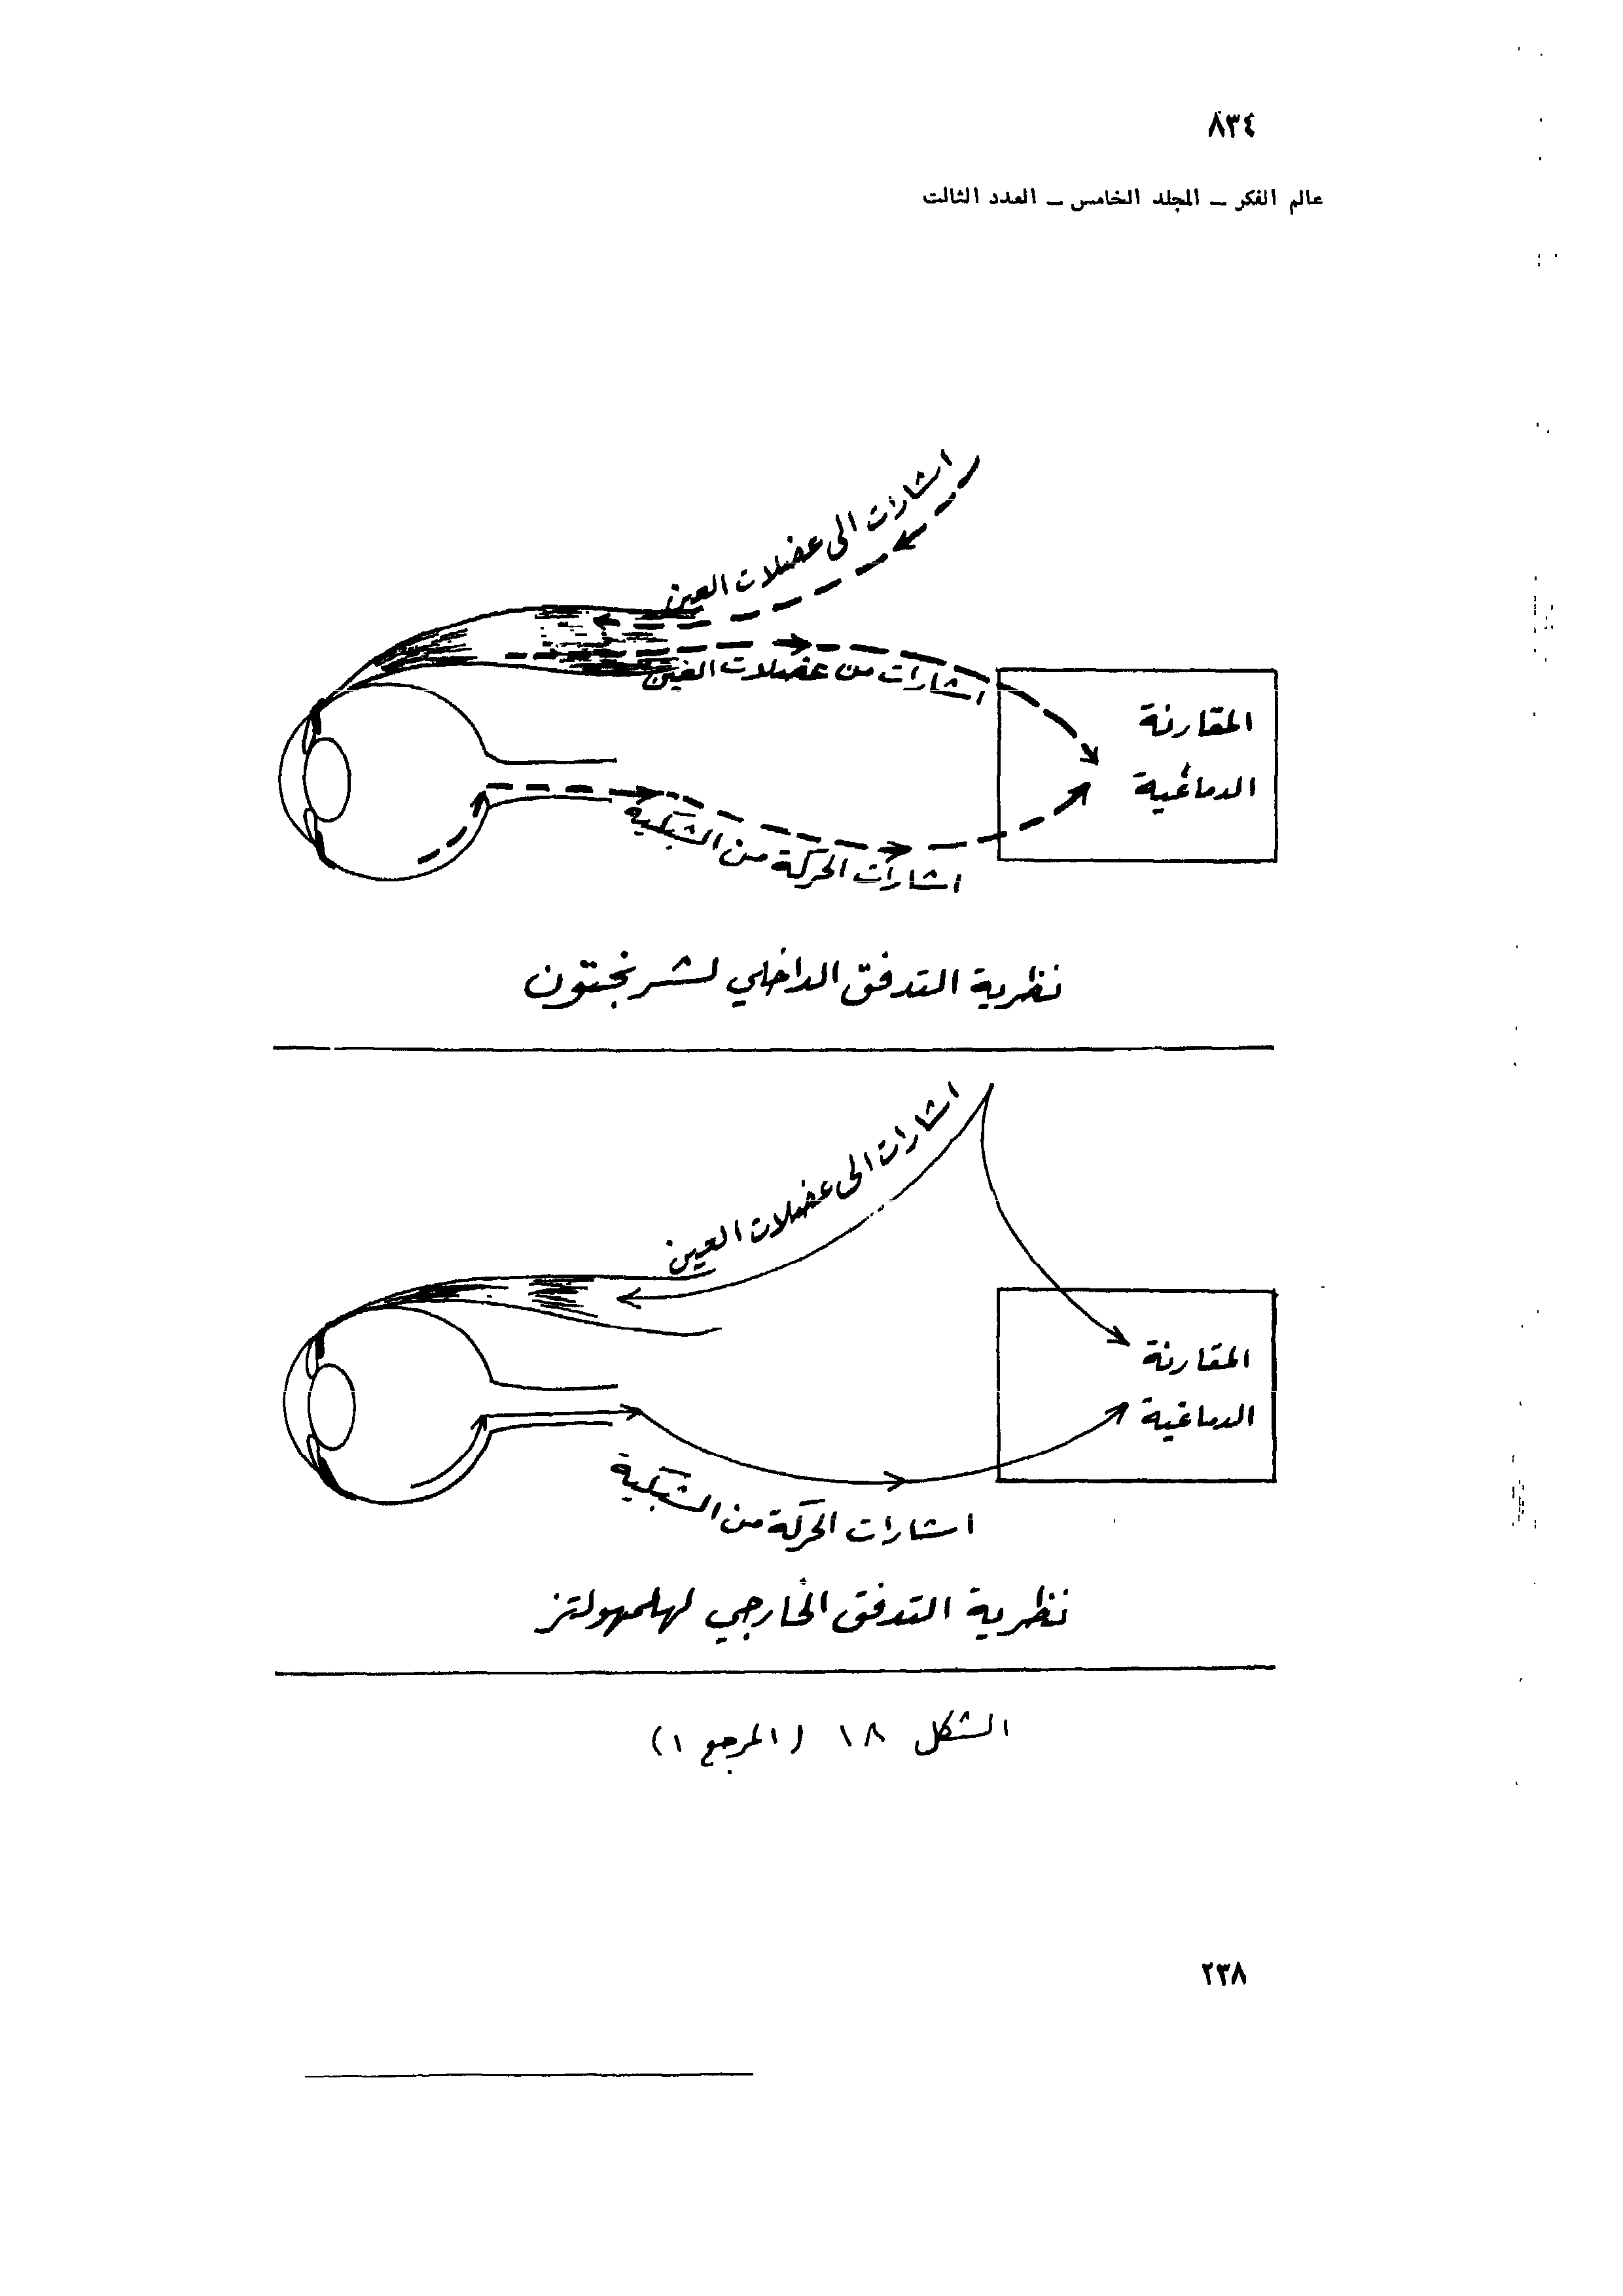 ٨٣٤
عالم الفكر – المجلد الخامس – العدد الثالث
اشارات الى عضلات العين
اشارات من عضلات العين
المقارنة
الدماغية
اشارات الحركة من الشبكية
نظرية التدفق الداخلي لشرنجتون
اشارات الى عضلات العين
المقارنة
الدماغية
اشارات الحركة من الشبكية
نظرية التدفق الخارجي لهلمهولتز
الشكل ١٨ (المرجع ١)
٢٣٨